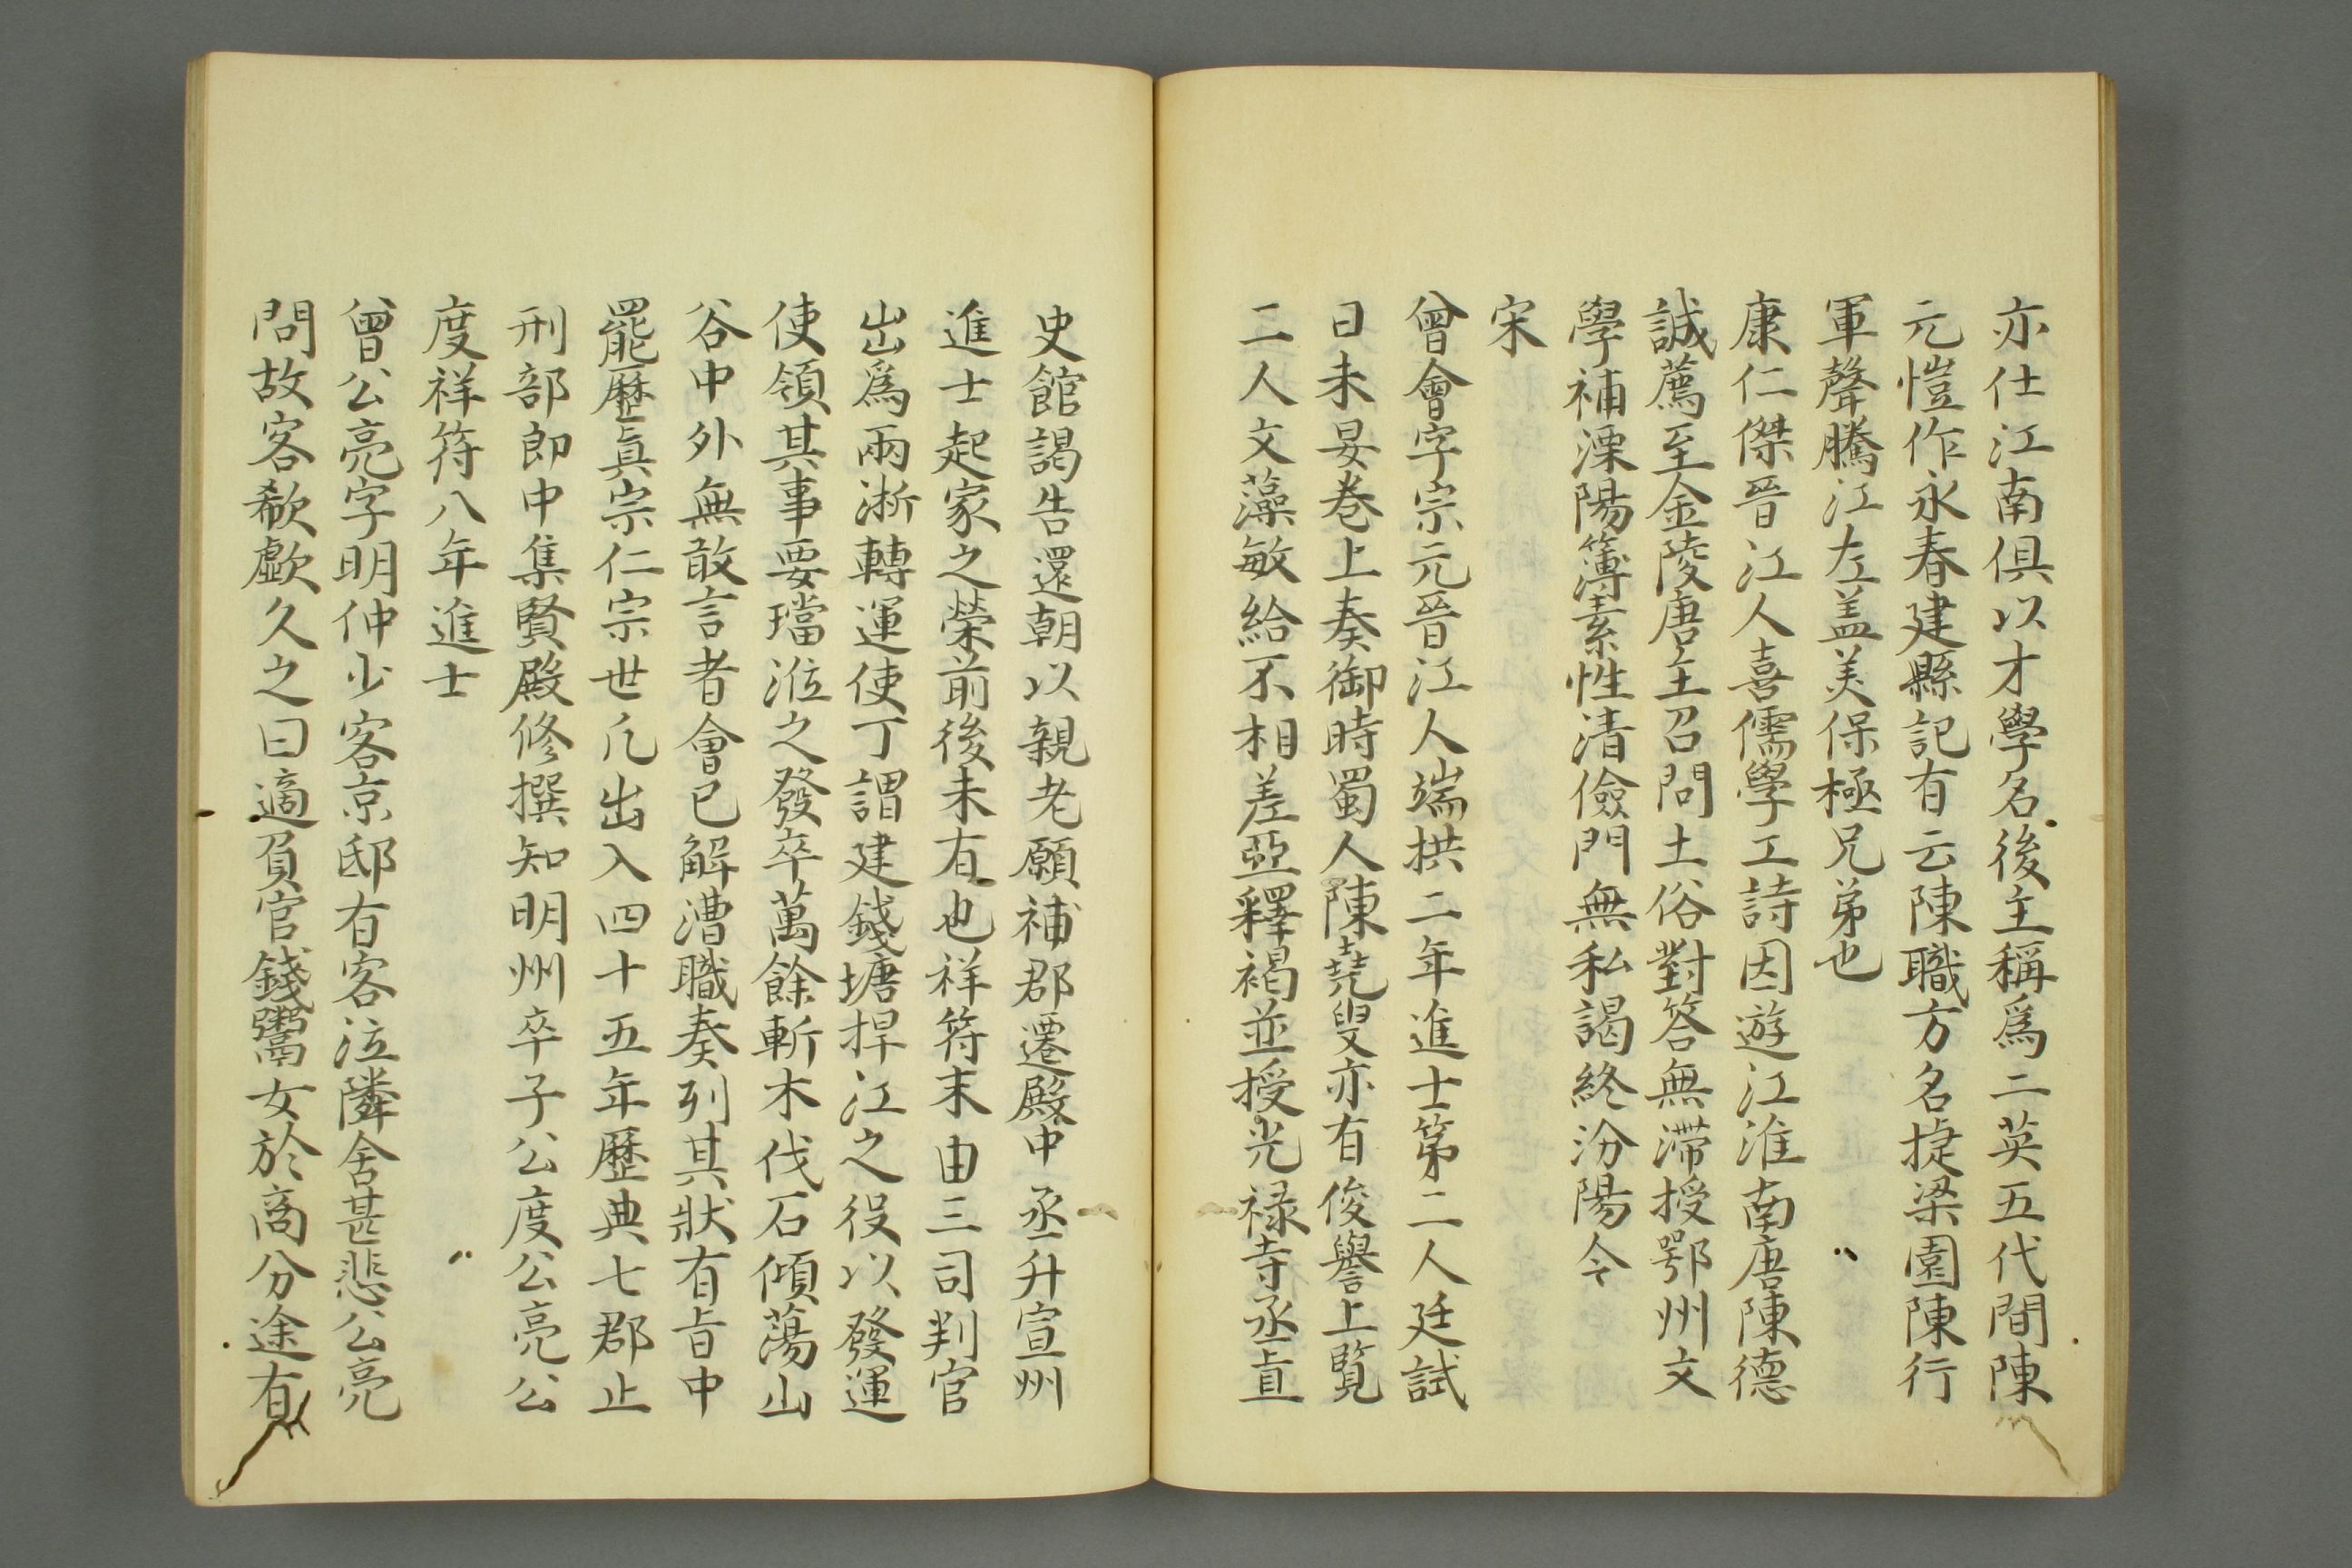 亦仕江南俱以才學名後主稱爲二英五代間陳
元愷作永春建縣記有云陳職方名捷梁園陳行
軍聲騰江左盖美保極兄弟也
康仁傑晉江人喜儒學工詩因遊江淮南唐陳德
誠薦至金陵唐主召問土俗對答無滯授鄂州文
學補溧陽簿素性清儉門無私謁終汾陽令
宋
曾會字宗元晉江人端拱二年進士第二人廷試
日未晏巻上奏御時蜀人陳堯叟亦有俊譽上覽
二人文藻敏給不相差亞釋褐並授光禄寺丞直
史館謁告還朝以親老願補郡遷殿中丞升宣州
進士起家之榮前後未有也祥符末由三司判官
出爲兩浙轉運使丁謂建錢塘捍江之役以發運
使領其事要璫涖之發卒萬餘斬木伐石傾蕩山
谷中外無敢言者會已解漕職奏列其狀有旨中
罷歷眞宗仁宗世凢出入四十五年歷典七郡止
刑部郎中集賢殿修撰知明州卒子公度公亮公
度祥符八年進士
曾公亮字明仲少客京邸有客泣隣舍甚悲公亮
問故客欷歔久之曰適負官錢鬻女於商分途有